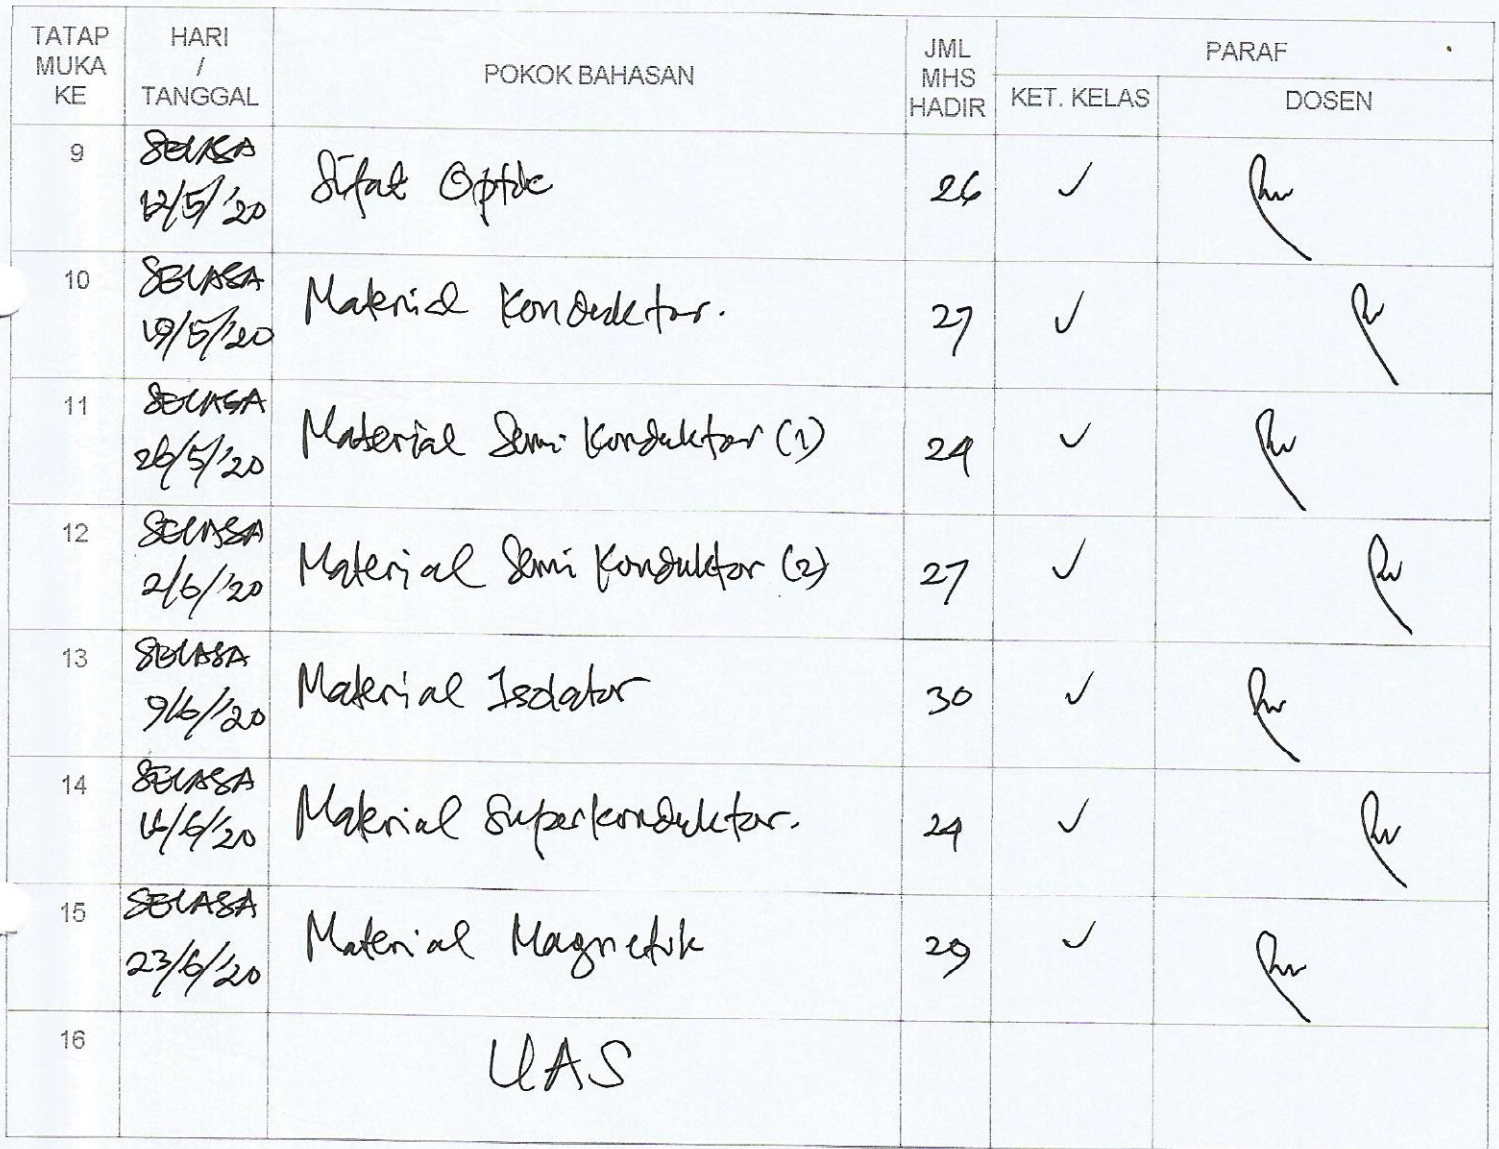 TATAP MUKA KE
HARI / TANGGAL
POKOK BAHASAN
JML MHS HADIR
PARAF
KET. KELAS
DOSEN
9 SELASA 12/5/'20 Sifat Optik 26 ✓
10 SELASA 19/5/'20 Material Konduktor. 27 ✓
11 SELASA 26/5/'20 Material Semi Konduktor (1) 24 ✓
12 SELASA 2/6/'20 Material Semi Konduktor (2) 27 ✓
13 SELASA 9/6/'20 Material Isolator 30 ✓
14 SELASA 16/6/'20 Material Superkonduktor. 24 ✓
15 SELASA 23/6/'20 Material Magnetik 29 ✓
16 UAS